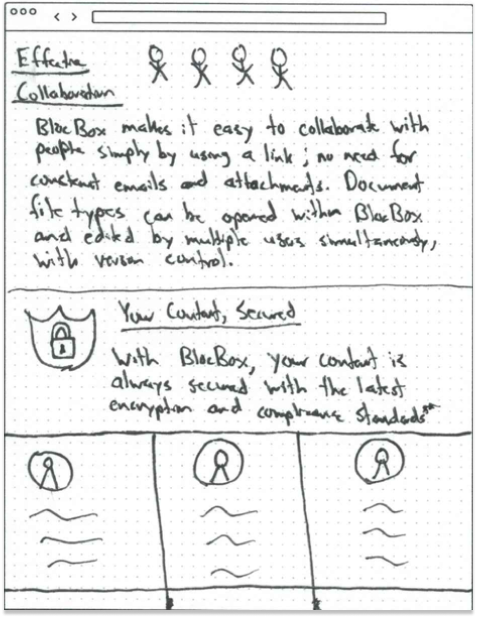 Effective
Collaboration
BlocBox makes it easy to collaborate with
people simply by using a link; no need for
constant emails and attachments. Document
file types can be opened within BlocBox
and edited by multiple users simultaneously,
with version control.
Your Content, Secured
With BlocBox, your content is
always secured with the latest
encryption and compliance standards**